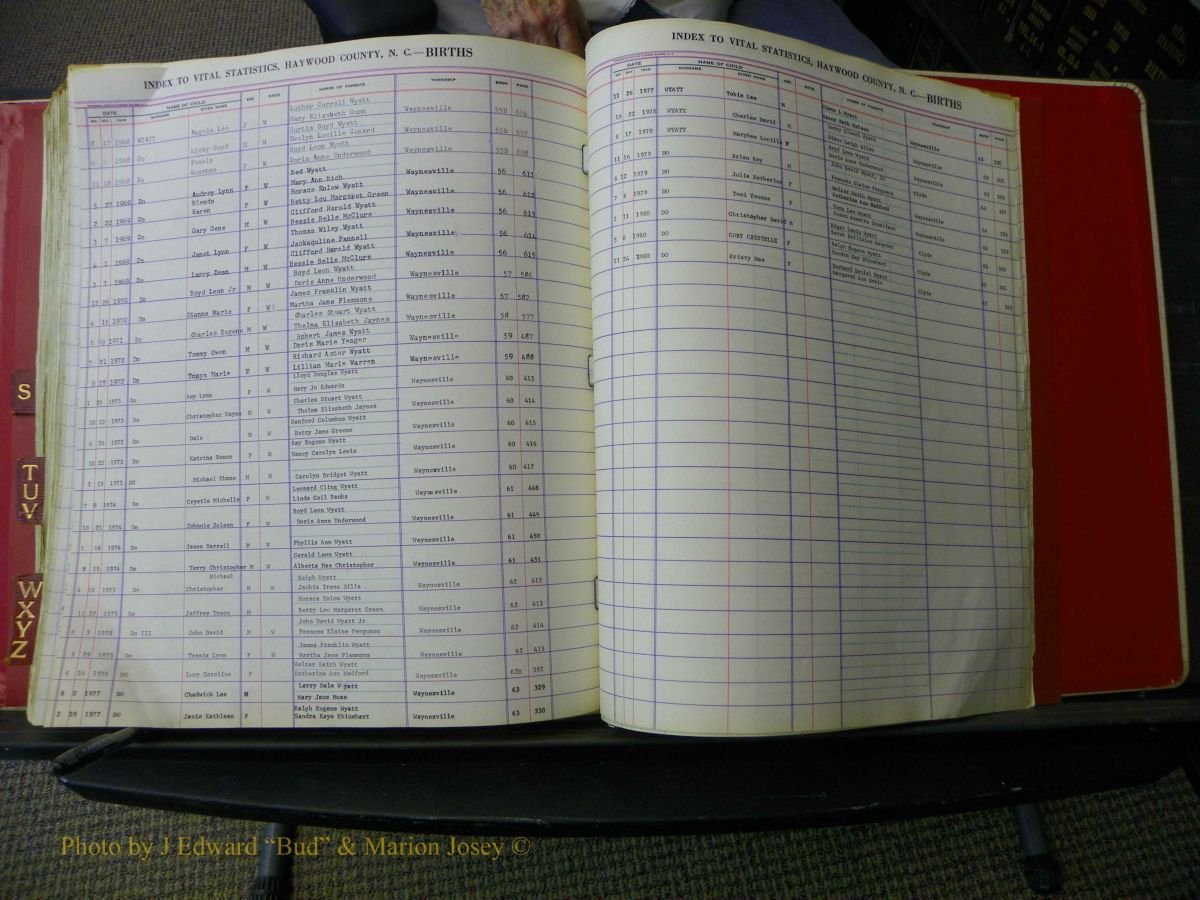 INDEX TO VITAL STATISTICS, HAYWOOD COUNTY, N. C.—BIRTHS
DATE NAME OF CHILD SEX RACE NAME OF PARENTS TOWNSHIP BOOK PAGE
MO. DAY YEAR SURNAME GIVEN NAME
8 17 1968 WYATT Angela Lee F W Luther Carroll Wyatt Waynesville 55B 656
Mary Elizabeth Gunn
1968 Do Ricky Boyd Curtis Boyd Wyatt Waynesville 55B 657
Evelyn Lucille Conard
1968 Do Pamela Suzanne F W Boyd Leon Wyatt Waynesville 55B 658
Doris Anne Underwood
1969 Do Audrey Lynn F W Ned Wyatt Waynesville 56 611
Mary Ann Rich
2 22 1969 Do Blenda Karen F W Horace Enlow Wyatt Waynesville 56 612
Betty Lou Margaret Green
3 7 1969 Do Gary Gene M W Clifford Harold Wyatt Waynesville 56 613
Bessie Belle McClure
4 1 1969 Do Janet Lynn F W Thomas Wiley Wyatt Waynesville 56 614
Jacksquline Pannell
3 7 1969 Do Larry Dean M W Clifford Harold Wyatt Waynesville 56 615
Bessie Belle McClure
10 26 1970 Do Boyd Leon Jr M W Boyd Leon Wyatt Waynesville 57 586
Doris Anne Underwood
4 15 1970 Do Dianna Marie F W James Franklin Wyatt Waynesville 57 587
Martha Jane Plemmons
1971 Do Charles Eugene M W Charles Stuart Wyatt Waynesville 58 577
Thelma Elizabeth Jaynes
21 1972 Do Tommy Owen M W Robert James Wyatt Waynesville 59 487
Doris Marie Yeager
9 19 1972 Do Tonya Marie F W Richard Aster Wyatt Waynesville 59 488
Lillian Marie Warren
1 20 1973 Do Amy Lynn F W Lloyd Douglas Wyatt Waynesville 60 413
Mary Jo Edwards
10 10 1973 Do Christopher Wayne M W Charles Stuart Wyatt Waynesville 60 414
Thelma Elizabeth Jaynes
4 24 1973 Do Dale M W Sanford Columbus Wyatt Waynesville 60 415
Betty Jane Greene
10 22 1973 Do Katrina Renee F W Ray Eugene Wyatt Waynesville 60 416
Nancy Carolyn Lewis
2 15 1973 DO Michael Shane M W Carolyn Bridget Wyatt Waynesville 60 417
7 8 1974 Do Crystle Michelle F W Leonard Cling Wyatt Waynesville 61 448
Linda Gail Banks
10 21 1974 Do Johnnie Joleen F W Boyd Leon Wyatt Waynesville 61 449
Doris Anne Underwood
1 16 1974 Do Jason Darrell M W Phyllis Ann Wyatt Waynesville 61 450
8 15 1974 Do Terry Christopher Michael M W Gerald Leon Wyatt Waynesville 61 451
Alberta Mae Christopher
4 16 1975 Do Christopher M W Ralph Wyatt Waynesville 62 412
Jackie Irene Dills
11 27 1975 Do Jeffrey Tyson M Horace Enlow Wyatt Waynesville 62 413
Betty Lou Margaret Green
5 3 1975 Do III John David M W John David Wyatt Jr Waynesville 62 414
Frances Elaine Ferguson
5 29 1975 Do Tresia Lynn F W James Franklin Wyatt Waynesville 62 415
Martha Jane Plemmons
6 24 1976 DO Lucy Caroline F Walter Keith Wyatt Waynesville 62B 392
Katherine Ann Medford
8 2 1977 DO Chadwick Lee M Larry Dale Wyatt Waynesville 63 329
Mary Jane Muse
2 28 1977 DO Jenie Kathleen F Ralph Eugene Wyatt Waynesville 63 330
Sandra Kaye Rhinehart
INDEX TO VITAL STATISTICS, HAYWOOD COUNTY, N. C.—BIRTHS
DATE NAME OF CHILD SEX RACE NAME OF PARENTS TOWNSHIP BOOK PAGE
MO. DAY YEAR SURNAME GIVEN NAME
11 26 1977 WYATT Tobie Lee M Glenn L Wyatt Waynesville
10 22 1978 WYATT Charles David M Terry Stuart Wyatt Waynesville
Diane Leigh Allen
8 17 1978 WYATT Marybee Lucille F Boyd Leon Wyatt Clyde
Doris Anne Underwood
11 16 1979 DO Brian Ray M John David Wyatt, Jr Waynesville
Frances Elaine Ferguson
4 12 1979 DO Julia Katherine F Walter Keith Wyatt Waynesville
Katherine Ann Medford
7 6 1979 DO Toni Yvonne F Tony Lee Wyatt Clyde
1 11 1980 DO Christopher David M Edgar Lewis Wyatt Clyde
5 6 1980 DO CORY CRISTELLE F Ralph Eugene Wyatt Clyde
Sandra Kay Rhinehart
11 24 1980 DO Kristy Mae F Durward Daniel Wyatt
Margaret Ann Erwin
S
T
U
V
W
X
Y
Z
Photo by J Edward “Bud” & Marion Josey ©